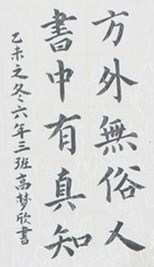 方外無俗人
書中有真知
乙未之冬六年三班高梦欣書